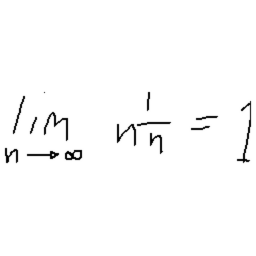 lim n→∞ n^{1/n} = 1